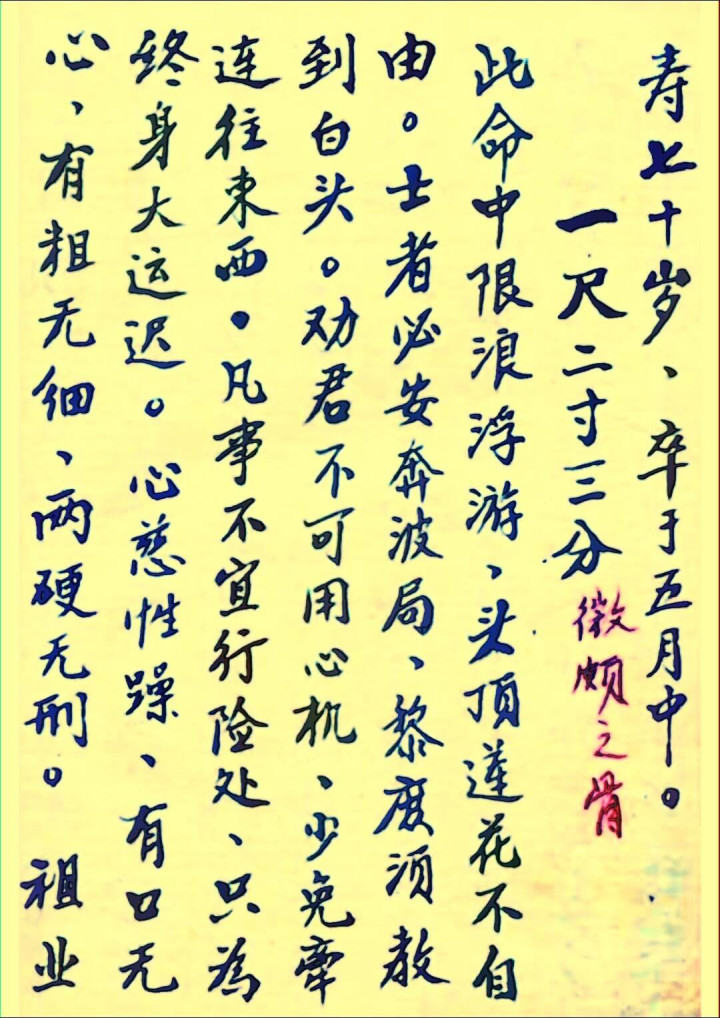 寿七十岁、卒于五月中。
一尺二寸三分 微颇之骨
此命中限浪浮游、头顶莲花不自
由。士者必安奔波局、黎度须教
到白头。劝君不可用心机、少免牵
连往东西。凡事不宜行险处、只為
终身大运迟。心慈性躁、有口无
心、有粗无细、两硬无刑。祖业